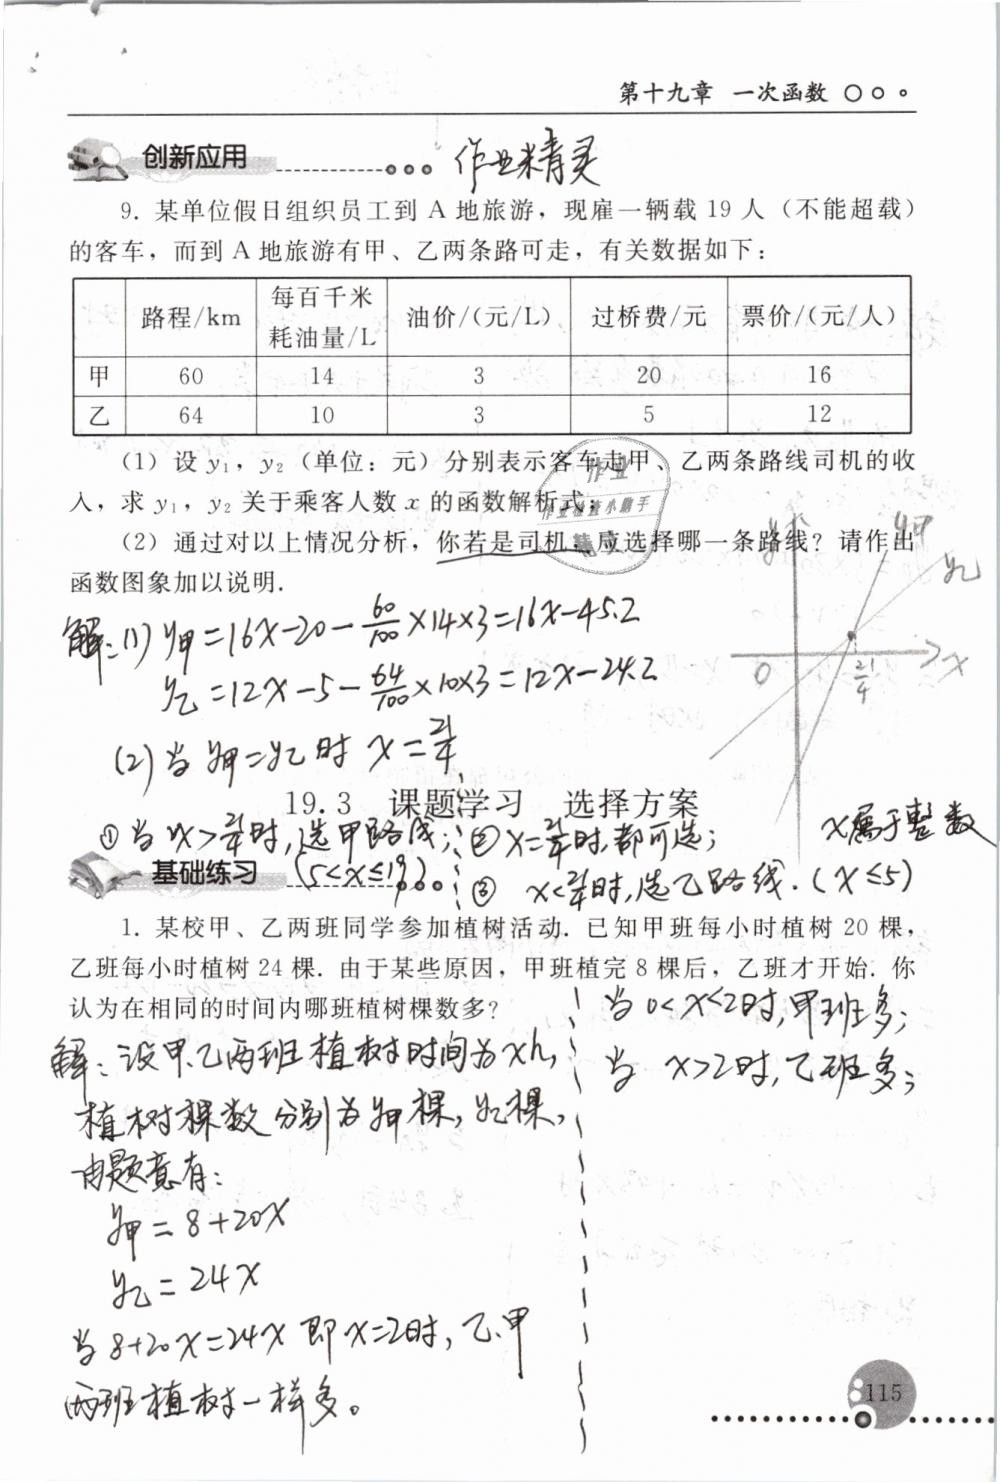 第十九章 一次函数
创新应用
作业精灵
9. 某单位假日组织员工到 A 地旅游，现雇一辆载 19 人（不能超载）
的客车，而到 A 地旅游有甲、乙两条路可走，有关数据如下：
路程/km 每百千米耗油量/L 油价/(元/L) 过桥费/元 票价/(元/人)
甲 60 14 3 20 16
乙 64 10 3 5 12
(1) 设 y₁，y₂（单位：元）分别表示客车走甲、乙两条路线司机的收
入，求 y₁，y₂ 关于乘客人数 x 的函数解析式；
(2) 通过对以上情况分析，你若是司机，应选择哪一条路线？请作出
函数图象加以说明.
作业
小助手
y y甲
y乙
0 21/4 x
解：(1) y甲=16x-20-60/100×14×3=16x-45.2
y乙=12x-5-64/100×10×3=12x-24.2
(2)当 y甲=y乙时 x=21/4
19.3 课题学习 选择方案
①当x>21/4时，选甲路线；②x=21/4时，都可选； x属于整数
基础练习
(5<x≤19) ③ x<21/4时，选乙路线.(x≤5)
1. 某校甲、乙两班同学参加植树活动. 已知甲班每小时植树 20 棵，
乙班每小时植树 24 棵. 由于某些原因，甲班植完 8 棵后，乙班才开始. 你
认为在相同的时间内哪班植树棵数多？
解：设甲、乙两班植树时间为xh，
植树棵数分别为y甲棵，y乙棵，
由题意有：
y甲=8+20x
y乙=24x
当8+20x=24x 即x=2时，乙、甲
两班植树一样多。
当0<x<2时，甲班多；
当 x>2时，乙班多；
115